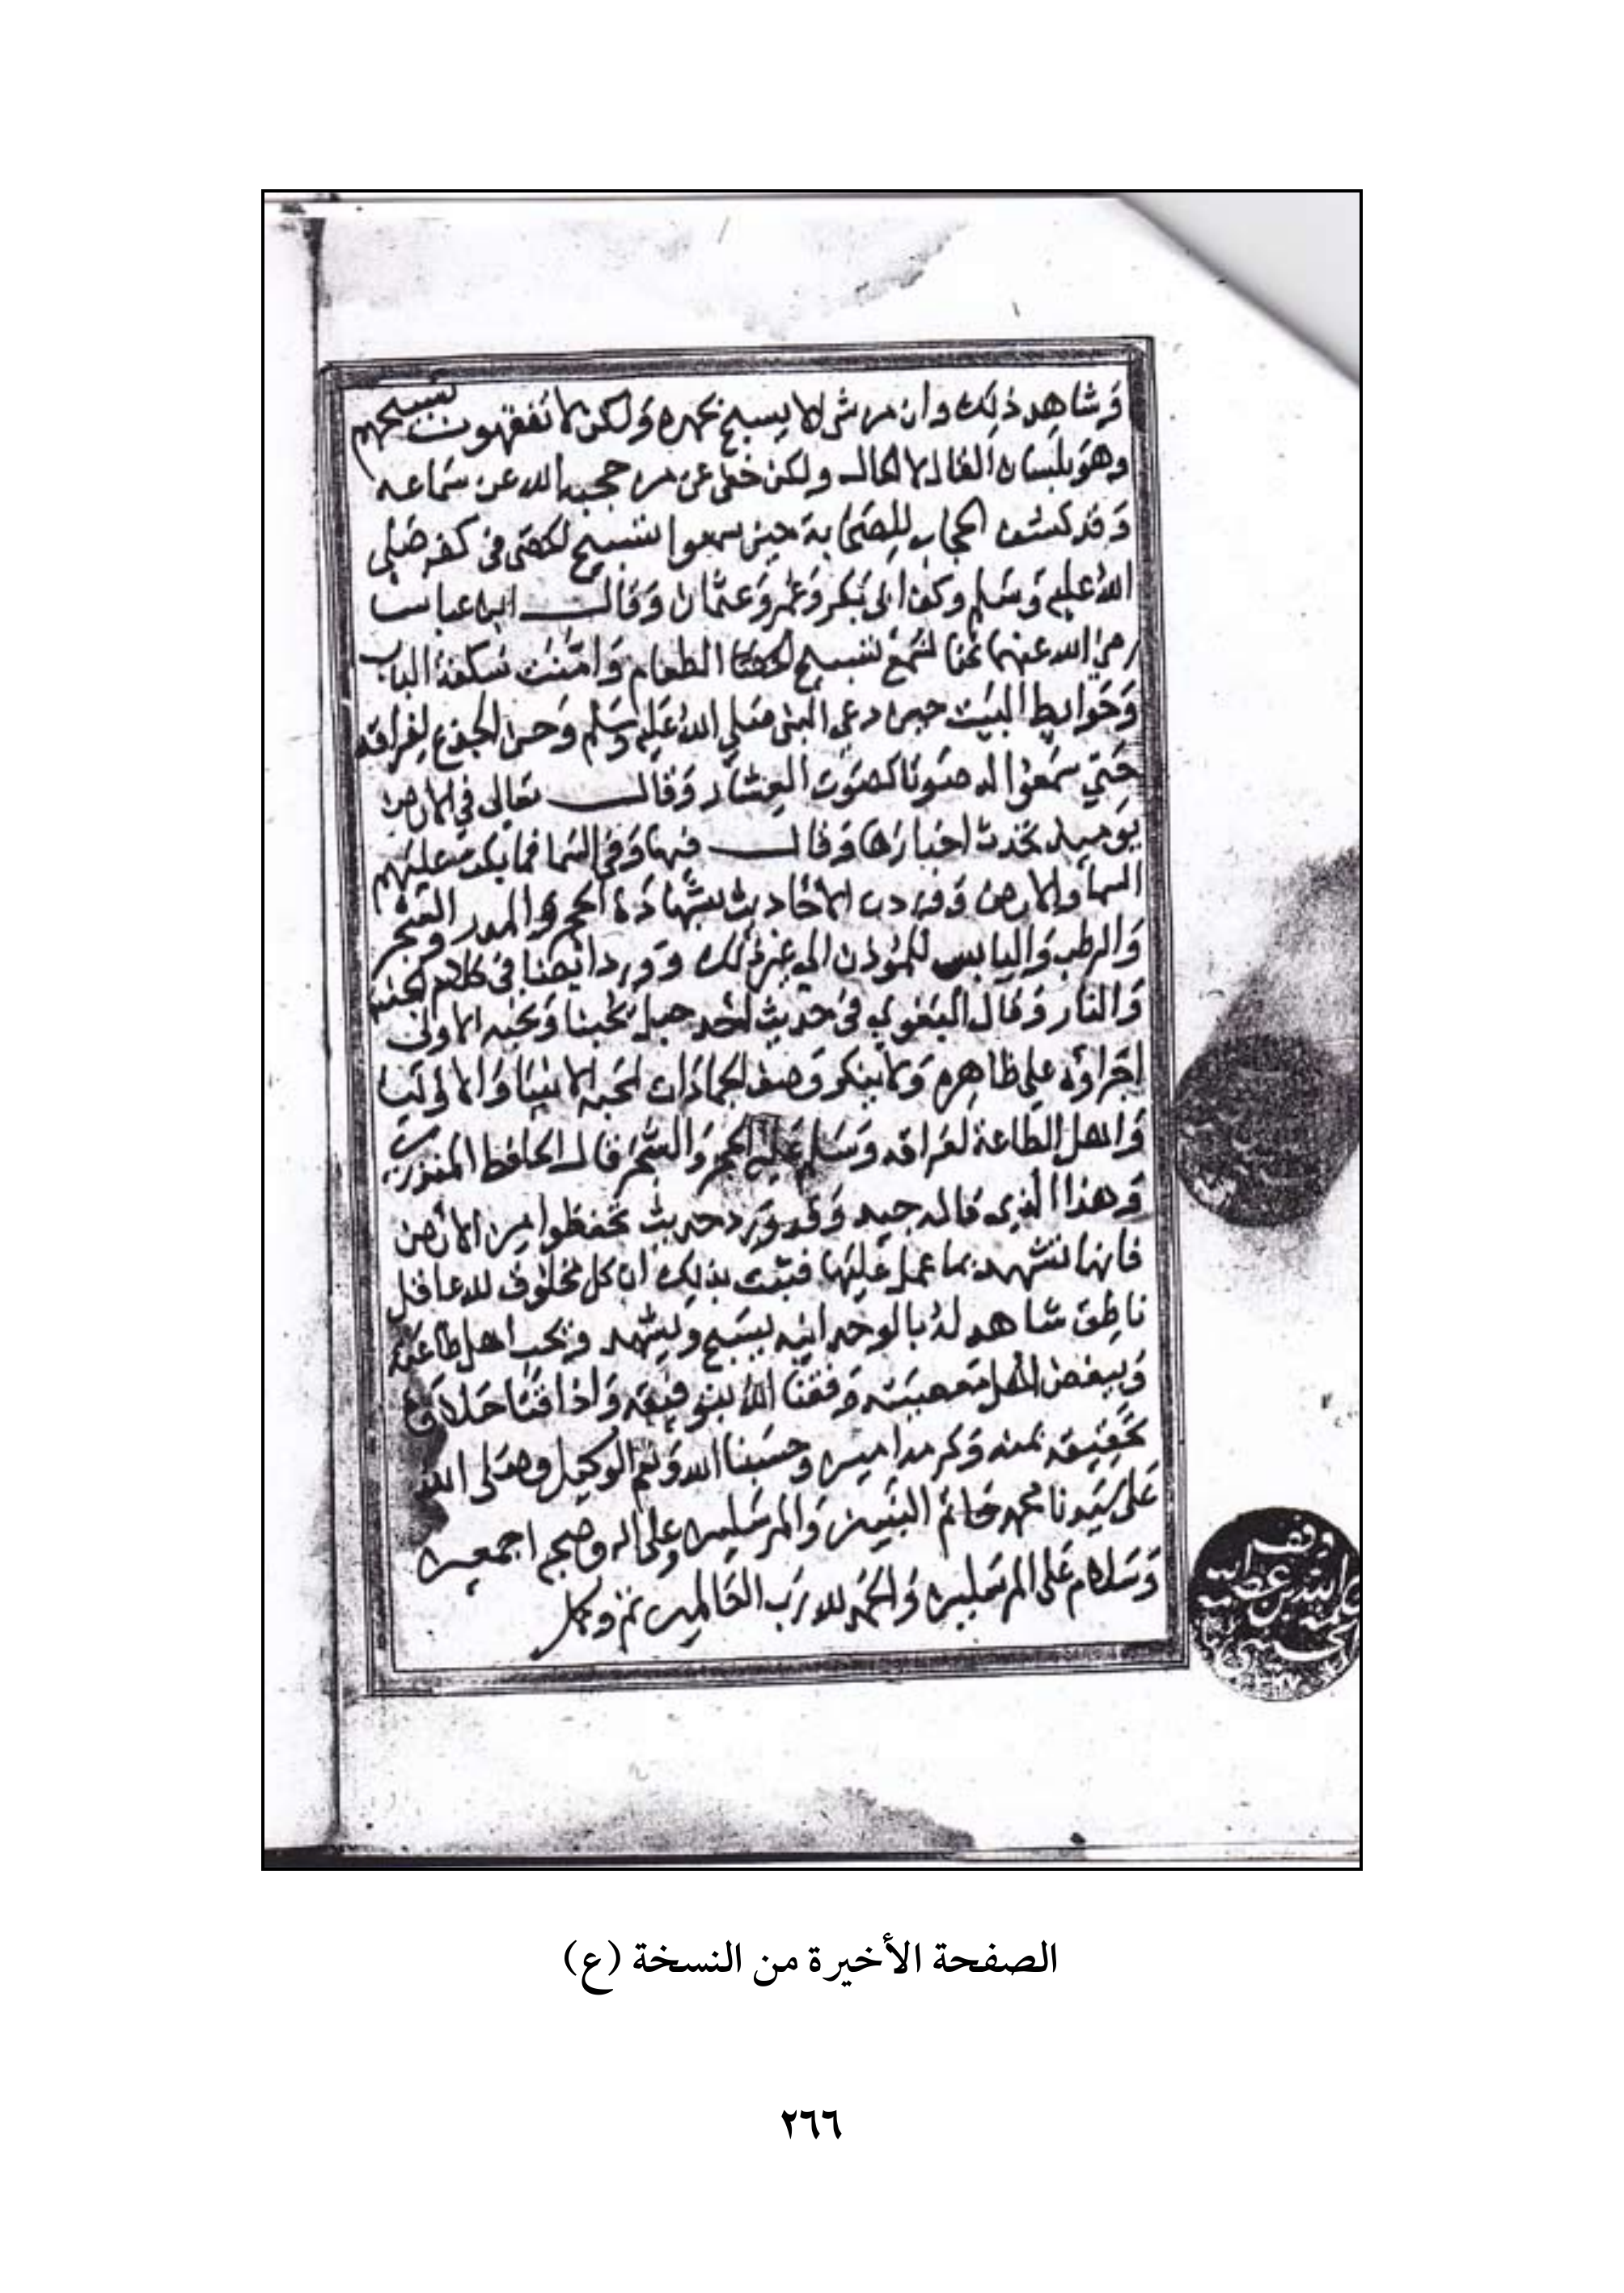 وشاهد ذلك وان من شي الا يسبح بحمده ولكن لا تفقهون تسبيحهم
وهو بلسان القال لا الحال ولكن خفي عن من حجبه الله عن سماعه
وقد كشف الحجاب للصحابة حين سمعوا تسبيح الحصى في كفه صلى
الله عليه وسلم وكف ابي بكر وعمر وعثمان وقال ابن عباس
رضي الله عنهما كنا نسمع تسبيح الطعام وامنت سكفة الباب
وحوايط البيت حين دعى النبي صلي الله عليه وسلم وحن الجذع لفراقه
حتي سمعوا له صوتا كصوت العشار وقال تعالى في الارض
يوميذ تحدث اخبارها وقال فيها وفي السما فما بكت عليهم
السما والارض ووردت الاحاديث بشهادة الحجر والمدر والشجر
والرطب واليابس للموذن الي غير ذلك وورد ايضا في كلام الجنة
والنار وقال البغوي في حديث احد جبل يحبنا ونحبه الاولى
اجراؤه على ظاهره ولا ينكر وصف الجمادات بحب الانبيا والاوليا
واهل الطاعة لفراقه وسلم عليه الحجر والشجر قال الحافظ المنذري
وهذا الذي قاله جيد وقد ورد حديث تحفظوا من الارض
فانها تشهد بما عمل عليها فثبت بذلك ان كل مخلوق لله عاقل
ناطق شاهد له بالوحدانيه يسبح ويشهد ويحب اهل طاعته
ويبغض اهل معصيته وفقنا الله بتوفيقه واذاقنا حلاوة
تحقيقه بمنه وكرمه امين وحسبنا الله ونعم الوكيل وصلى الله
على سيدنا محمد خاتم النبيين والمرسلين وعلى اله وصحبه اجمعين
وسلام على المرسلين والحمد لله رب العالمين تم وكمل
وقف
الصفحة الأخيرة من النسخة (ع)
٢٦٦